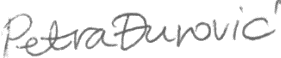 Petra Đurović